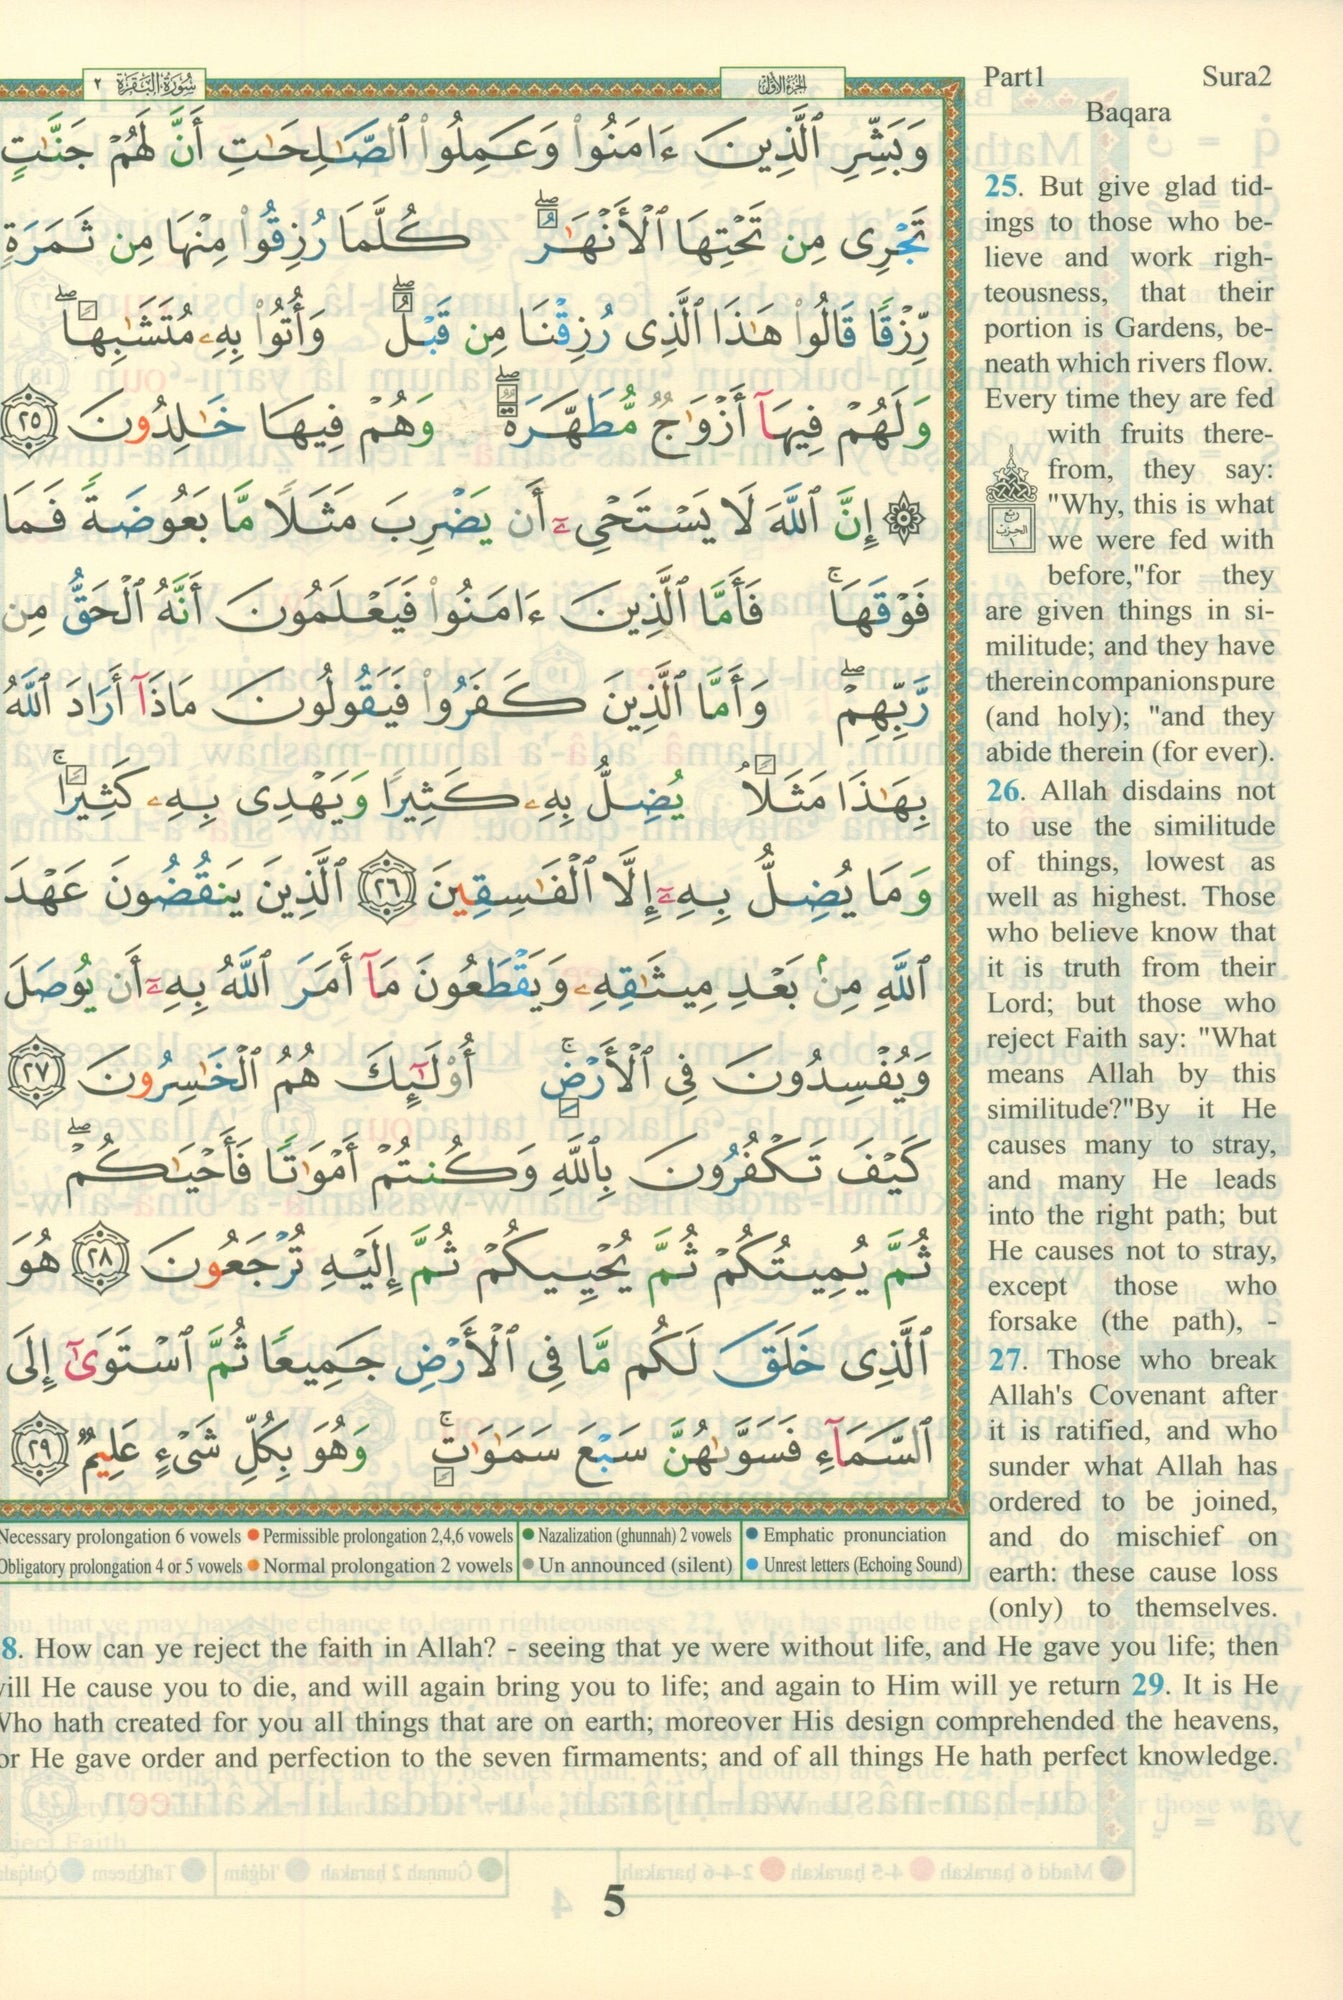 سُورَةُ البَقَرَة ٢
الجُزءُ الأوَّل
Part1 Sura2
Baqara
وَبَشِّرِ ٱلَّذِينَ ءَامَنُوا۟ وَعَمِلُوا۟ ٱلصَّـٰلِحَـٰتِ أَنَّ لَهُمْ جَنَّـٰتٍ
تَجْرِى مِن تَحْتِهَا ٱلْأَنْهَـٰرُ ۖ كُلَّمَا رُزِقُوا۟ مِنْهَا مِن ثَمَرَةٍ
رِّزْقًا قَالُوا۟ هَـٰذَا ٱلَّذِى رُزِقْنَا مِن قَبْلُ ۖ وَأُتُوا۟ بِهِۦ مُتَشَـٰبِهًا ۖ
وَلَهُمْ فِيهَآ أَزْوَٰجٌ مُّطَهَّرَةٌ ۖ وَهُمْ فِيهَا خَـٰلِدُونَ ٢٥
۞ إِنَّ ٱللَّهَ لَا يَسْتَحْىِۦٓ أَن يَضْرِبَ مَثَلًا مَّا بَعُوضَةً فَمَا
فَوْقَهَا ۚ فَأَمَّا ٱلَّذِينَ ءَامَنُوا۟ فَيَعْلَمُونَ أَنَّهُ ٱلْحَقُّ مِن
رَّبِّهِمْ ۖ وَأَمَّا ٱلَّذِينَ كَفَرُوا۟ فَيَقُولُونَ مَاذَآ أَرَادَ ٱللَّهُ
بِهَـٰذَا مَثَلًا ۘ يُضِلُّ بِهِۦ كَثِيرًا وَيَهْدِى بِهِۦ كَثِيرًا ۚ
وَمَا يُضِلُّ بِهِۦٓ إِلَّا ٱلْفَـٰسِقِينَ ٢٦ ٱلَّذِينَ يَنقُضُونَ عَهْدَ
ٱللَّهِ مِنۢ بَعْدِ مِيثَـٰقِهِۦ وَيَقْطَعُونَ مَآ أَمَرَ ٱللَّهُ بِهِۦٓ أَن يُوصَلَ
وَيُفْسِدُونَ فِى ٱلْأَرْضِ ۚ أُو۟لَـٰٓئِكَ هُمُ ٱلْخَـٰسِرُونَ ٢٧
كَيْفَ تَكْفُرُونَ بِٱللَّهِ وَكُنتُمْ أَمْوَٰتًا فَأَحْيَـٰكُمْ ۖ
ثُمَّ يُمِيتُكُمْ ثُمَّ يُحْيِيكُمْ ثُمَّ إِلَيْهِ تُرْجَعُونَ ٢٨ هُوَ
ٱلَّذِى خَلَقَ لَكُم مَّا فِى ٱلْأَرْضِ جَمِيعًا ثُمَّ ٱسْتَوَىٰٓ إِلَى
ٱلسَّمَآءِ فَسَوَّىٰهُنَّ سَبْعَ سَمَـٰوَٰتٍ ۚ وَهُوَ بِكُلِّ شَىْءٍ عَلِيمٌ ٢٩
25. But give glad tid-
ings to those who be-
lieve and work righ-
teousness, that their
portion is Gardens, be-
neath which rivers flow.
Every time they are fed
with fruits there-
from, they say:
"Why, this is what
we were fed with
before,"for they
ربع
الحزب
١
are given things in si-
militude; and they have
therein companions pure
(and holy); "and they
abide therein (for ever).
26. Allah disdains not
to use the similitude
of things, lowest as
well as highest. Those
who believe know that
it is truth from their
Lord; but those who
reject Faith say: "What
means Allah by this
similitude?"By it He
causes many to stray,
and many He leads
into the right path; but
He causes not to stray,
except those who
forsake (the path), -
27. Those who break
Allah's Covenant after
it is ratified, and who
sunder what Allah has
ordered to be joined,
and do mischief on
earth: these cause loss
(only) to themselves.
Necessary prolongation 6 vowels ● Permissible prolongation 2,4,6 vowels ● Nazalization (ghunnah) 2 vowels ● Emphatic pronunciation
Obligatory prolongation 4 or 5 vowels ● Normal prolongation 2 vowels ● Un announced (silent) ● Unrest letters (Echoing Sound)
8. How can ye reject the faith in Allah? - seeing that ye were without life, and He gave you life; then
will He cause you to die, and will again bring you to life; and again to Him will ye return 29. It is He
Who hath created for you all things that are on earth; moreover His design comprehended the heavens,
or He gave order and perfection to the seven firmaments; and of all things He hath perfect knowledge.
5